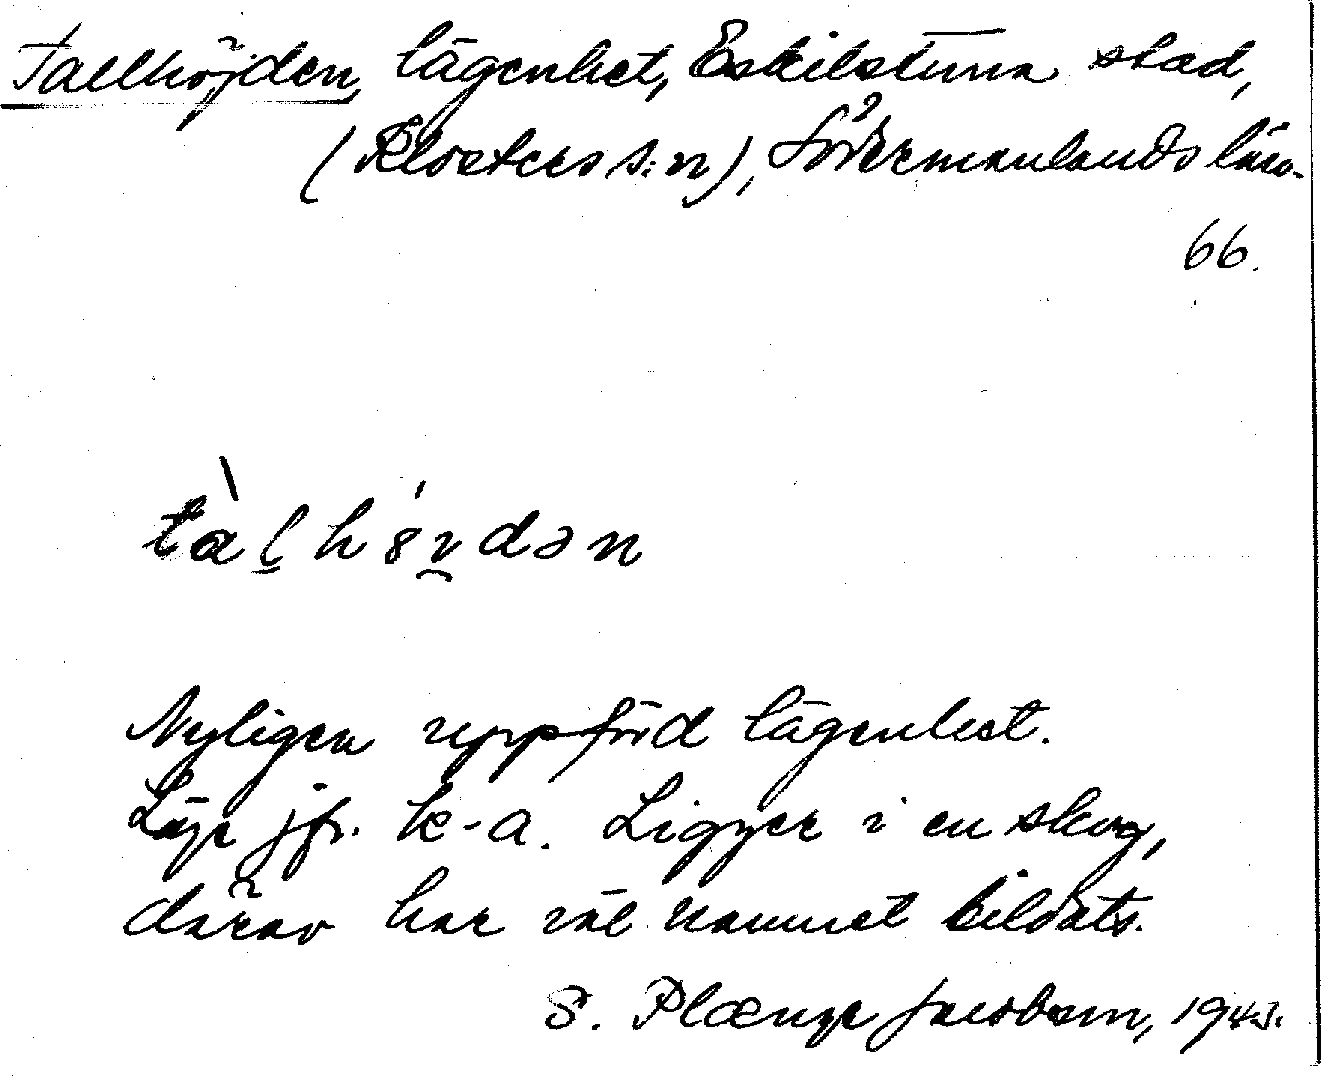 Tallhöjden, lägenhet, Eskilstuna stad,
(Klosters s:n), Södermanlands län.
66.
tàlhöydən
Nyligen uppförd lägenhet.
Läge jfr. k-a. Ligger i en skog,
därav har väl namnet bildats.
S. Plænge Jacobson, 1945.